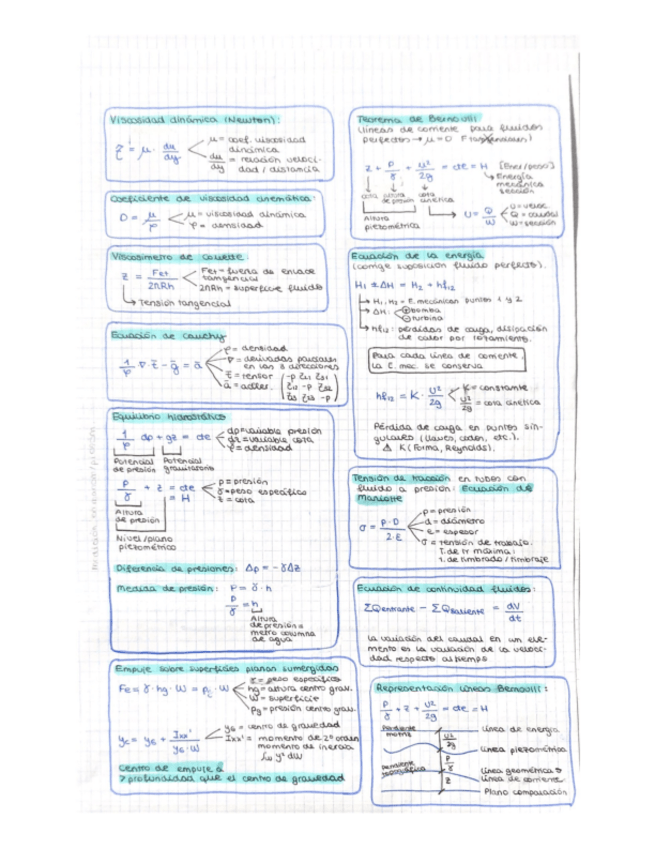 Viscosidad dinámica (Newton):
τ = μ · du/dy
μ = coef. viscosidad
dinámica
du/dy = relación veloci-
dad / distancia
Coeficiente de viscosidad cinemática:
D = μ/ρ
μ = viscosidad dinámica
ρ = densidad
Viscosímetro de couette:
τ = Fet / 2πRh
Fet = fuerza de
tangencial
2πRh = superficie fluido
Tensión tangencial
Ecuación de cauchy
1/ρ · ∇ · τ̄ - ḡ = ā
ρ = densidad
∇ = derivadas parciales
en las 3 direcciones
τ̄ = tensor
Equilibrio hidrostático
1/ρ dp + gz = cte
dp = variable presión
dz = variable cota
ρ = densidad
Potencial de presión
Potencial gravitatorio
p/γ + z = cte
= H
p = presión
γ = peso específico
z = cota
Altura
de presión
Nivel/plano
piezométrico
Diferencia de presiones: Δp = -γΔz
Medida de presión: P = γ · h
P/γ = h
Altura
de presión a
metro columna
de agua
Empuje sobre superficies planas sumergidas
Fe = γ · hg · W = pg · W
γ = peso específico
hg = altura centro grav.
W = superficie
pg = presión centro grav.
yc = yG + Ixx' / yG · W
yG = centro de gravedad
Ixx' = momento de 2º orden
momento de inercia
∫w y² dW
Centro de empuje a
↑ profundidad que el centro de gravedad
Teorema de Bernoulli
(líneas de corriente para fluidos
perfectos → μ = 0
z + p/γ + u²/2g = cte = H [Ener/peso]
Energía
mecánica
sección
cota
altura
de presión
cota
cinética
Altura
piezométrica
U = Q/W
U = veloc.
Q = caudal
W = sección
Ecuación de la energía
(corrige suposición fluido perfecto).
H₁ ± ΔH = H₂ + hf₁₂
H₁, H₂ = E. mecánica en puntos 1 y 2
ΔH: ⊕ bomba
⊖ turbina
hf₁₂: pérdidas de carga, disipación
de calor por rozamiento.
Para cada línea de corriente,
la E. mec. se conserva
hf₁₂ = K · U²/2g
K = constante
U²/2g = cota cinética
Pérdida de carga en puntos sin-
gulares (llaves, codos, etc.).
⚠ K (Forma, Reynolds).
Tensión de tracción en tubos con
fluido a presión: Ecuación de
Mariotte
σ = P · D / 2 · E
p = presión
d = diámetro
e = espesor
σ = tensión de trabajo.
T. de tr máxima:
T. de timbrado / timbraje
Ecuación de continuidad fluidos:
ΣQentrante - ΣQsaliente = dV/dt
La variación del caudal en un ele-
mento es la variación de la veloci-
dad respecto al tiempo
Representación líneas Bernoulli:
P/γ + z + U²/2g = cte = H
Pendiente
motriz
U²/2g
Línea de energía
Línea piezométrica
pendiente
P/γ
Línea geométrica o
línea de corriente
z
Plano comparación